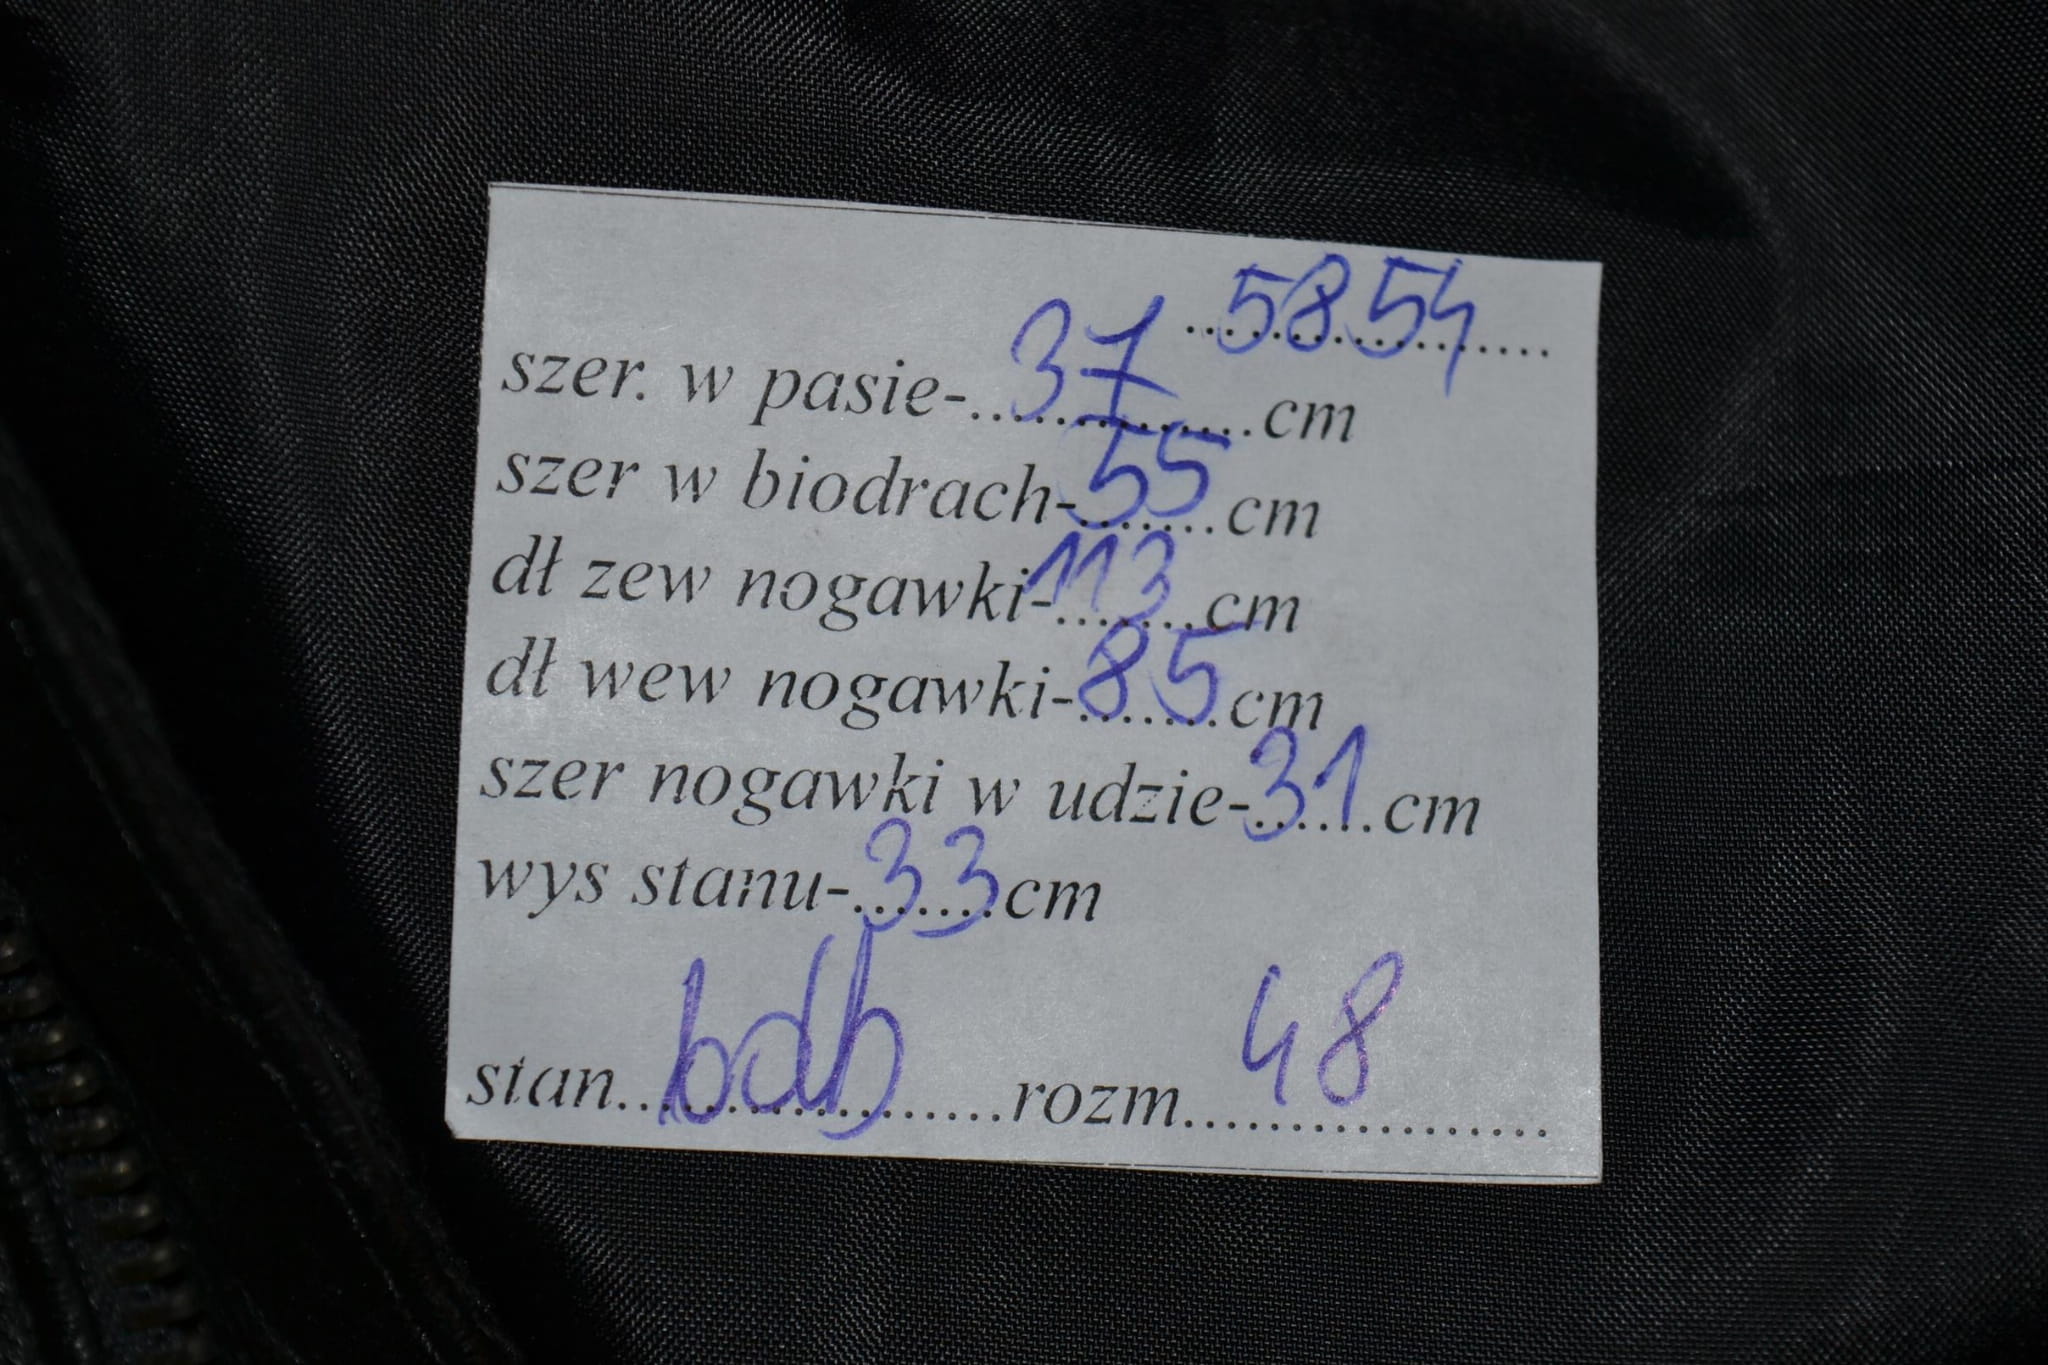 5854
szer. w pasie-37cm
szer w biodrach-55cm
dł zew nogawki-113cm
dł wew nogawki-85cm
szer nogawki w udzie-31cm
wys stanu-33cm
stan bdb rozm 48